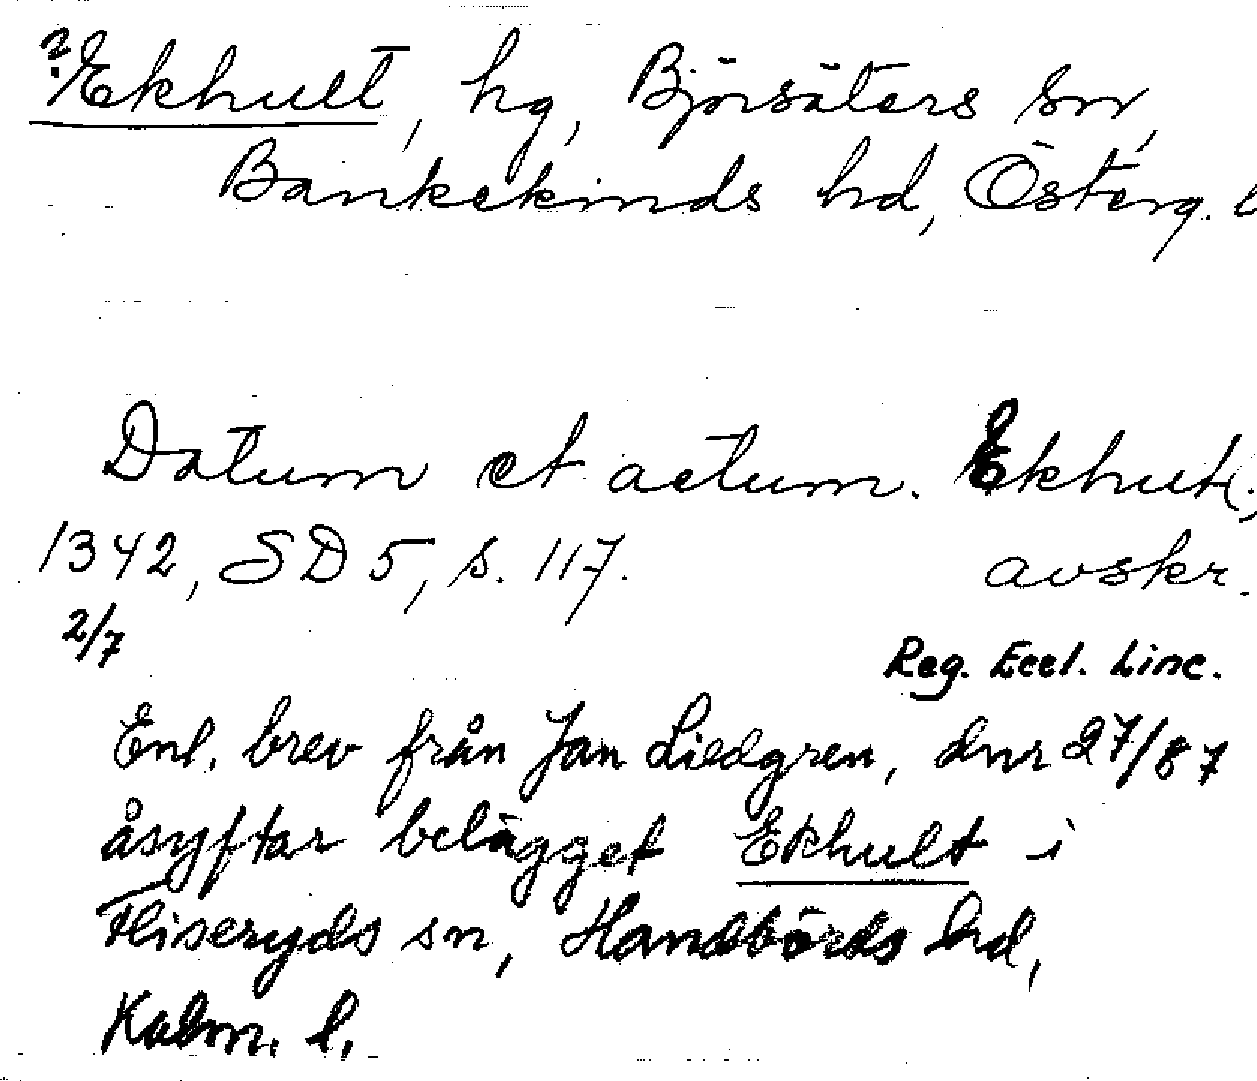 ? Ekhult, hg, Björsäters sn,
Bankekinds hd, Österg. l
Datum et actum. Ekhult.,
1342, SD 5, s. 117. avskr.
2/7 Reg. Eccl. Linc.
Enl. brev från Jan Liedgren, dnr 27/87
åsyftar belägget Ekhult i
Fliseryds sn, Handbörds hd,
Kalm. l.